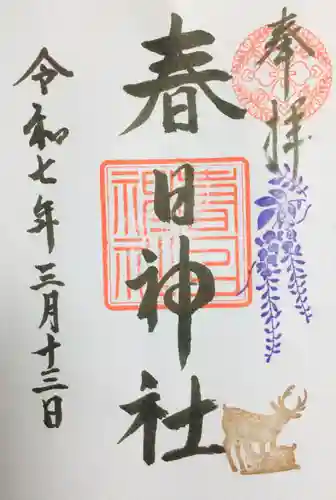 奉拝
春日神社
令和七年三月十三日
春日
神社